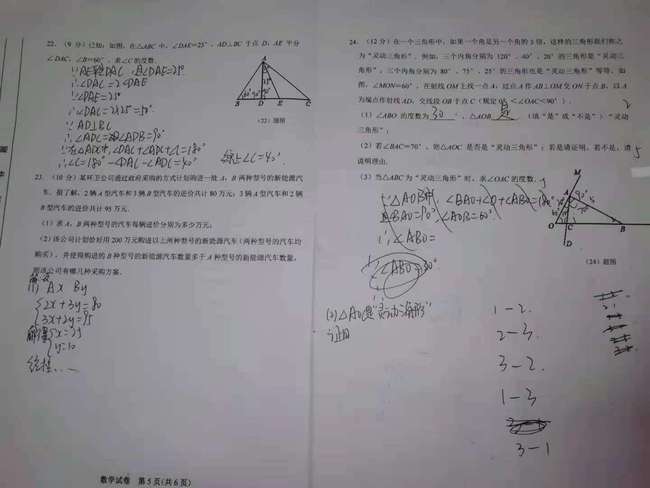 22. (9分) 已知：如图，在△ABC中，∠DAE=25°，AD⊥BC于点D，AE平分
∠DAC，∠B=60°，求∠C的度数.
∵AE平分∠DAC 且∠DAE=25°
∴∠DAC=2∠DAE
∵∠DAE=25°
∴∠DAC=2×25°=50°
∵AD⊥BC
∴∠ADC=∠ADB=90°
∵在△ADC中，∠DAC+∠ADC+∠C=180°
∴∠C=180°-∠DAC-∠ADC=40°
∠C=40°.
A
B D E C
(22)题图
23. (10分) 某环卫公司通过政府采购的方式计划购进一批A，B两种型号的新能源汽
车. 据了解，2辆A型汽车和3辆B型汽车的进价共计80万元；3辆A型汽车和2辆
B型汽车的进价共计95万元.
(1) 求A，B两种型号的汽车每辆进价分别为多少万元；
(2) 该公司计划恰好用200万元购进以上两种型号的新能源汽车（两种型号的汽车均
购买），并使得购进的B种型号的新能源汽车数量多于A种型号的新能源汽车数量，
则该公司有哪几种采购方案.
Ax By
2x+3y=80
3x+2y=95
解得 x=25
y=10
数学试卷 第5页(共6页)
24. (12分) 在一个三角形中，如果一个角是另一个角的3倍，这样的三角形我们称之
为“灵动三角形”. 例如，三个内角分别为120°，40°，20°的三角形是“灵动三
角形”；三个内角分别为80°，75°，25°的三角形也是“灵动三角形”等等. 如
图，∠MON=60°，在射线OM上找一点A，过点A作AB⊥OM交ON于点B，以A
为端点作射线AD，交线段OB于点C（规定0°<∠OAC<90°）.
(1) ∠ABO的度数为 30 °，△AOB 是 （填“是”或“不是”）“灵动
三角形”；
(2) 若∠BAC=70°，则△AOC是否是“灵动三角形”？若是请证明，若不是，请
说明理由.
(3) 当△ABC为“灵动三角形”时，求∠OAC的度数.
∵△AOB中，∠BAO+∠O+∠ABO=180°
∠BAO=90° ∠AOB=60°
∴∠ABO=
∴∠ABO=30°
M
A
O C B
D
(24)题图
(2) △AOC是“灵动三角形”
证明
1-2.
2-3.
3-2.
1-3
3-1